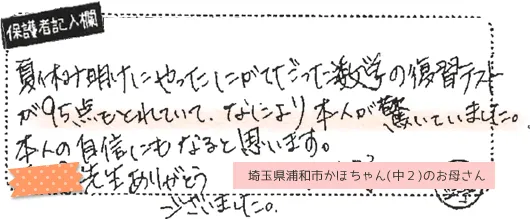 保護者記入欄
夏休み明けにやったにがてだった数学の復習テスト
が95点もとれていて、なにより本人が驚いていました。
本人の自信にもなると思います。
先生ありがとう
ございました。
埼玉県浦和市かほちゃん(中2)のお母さん